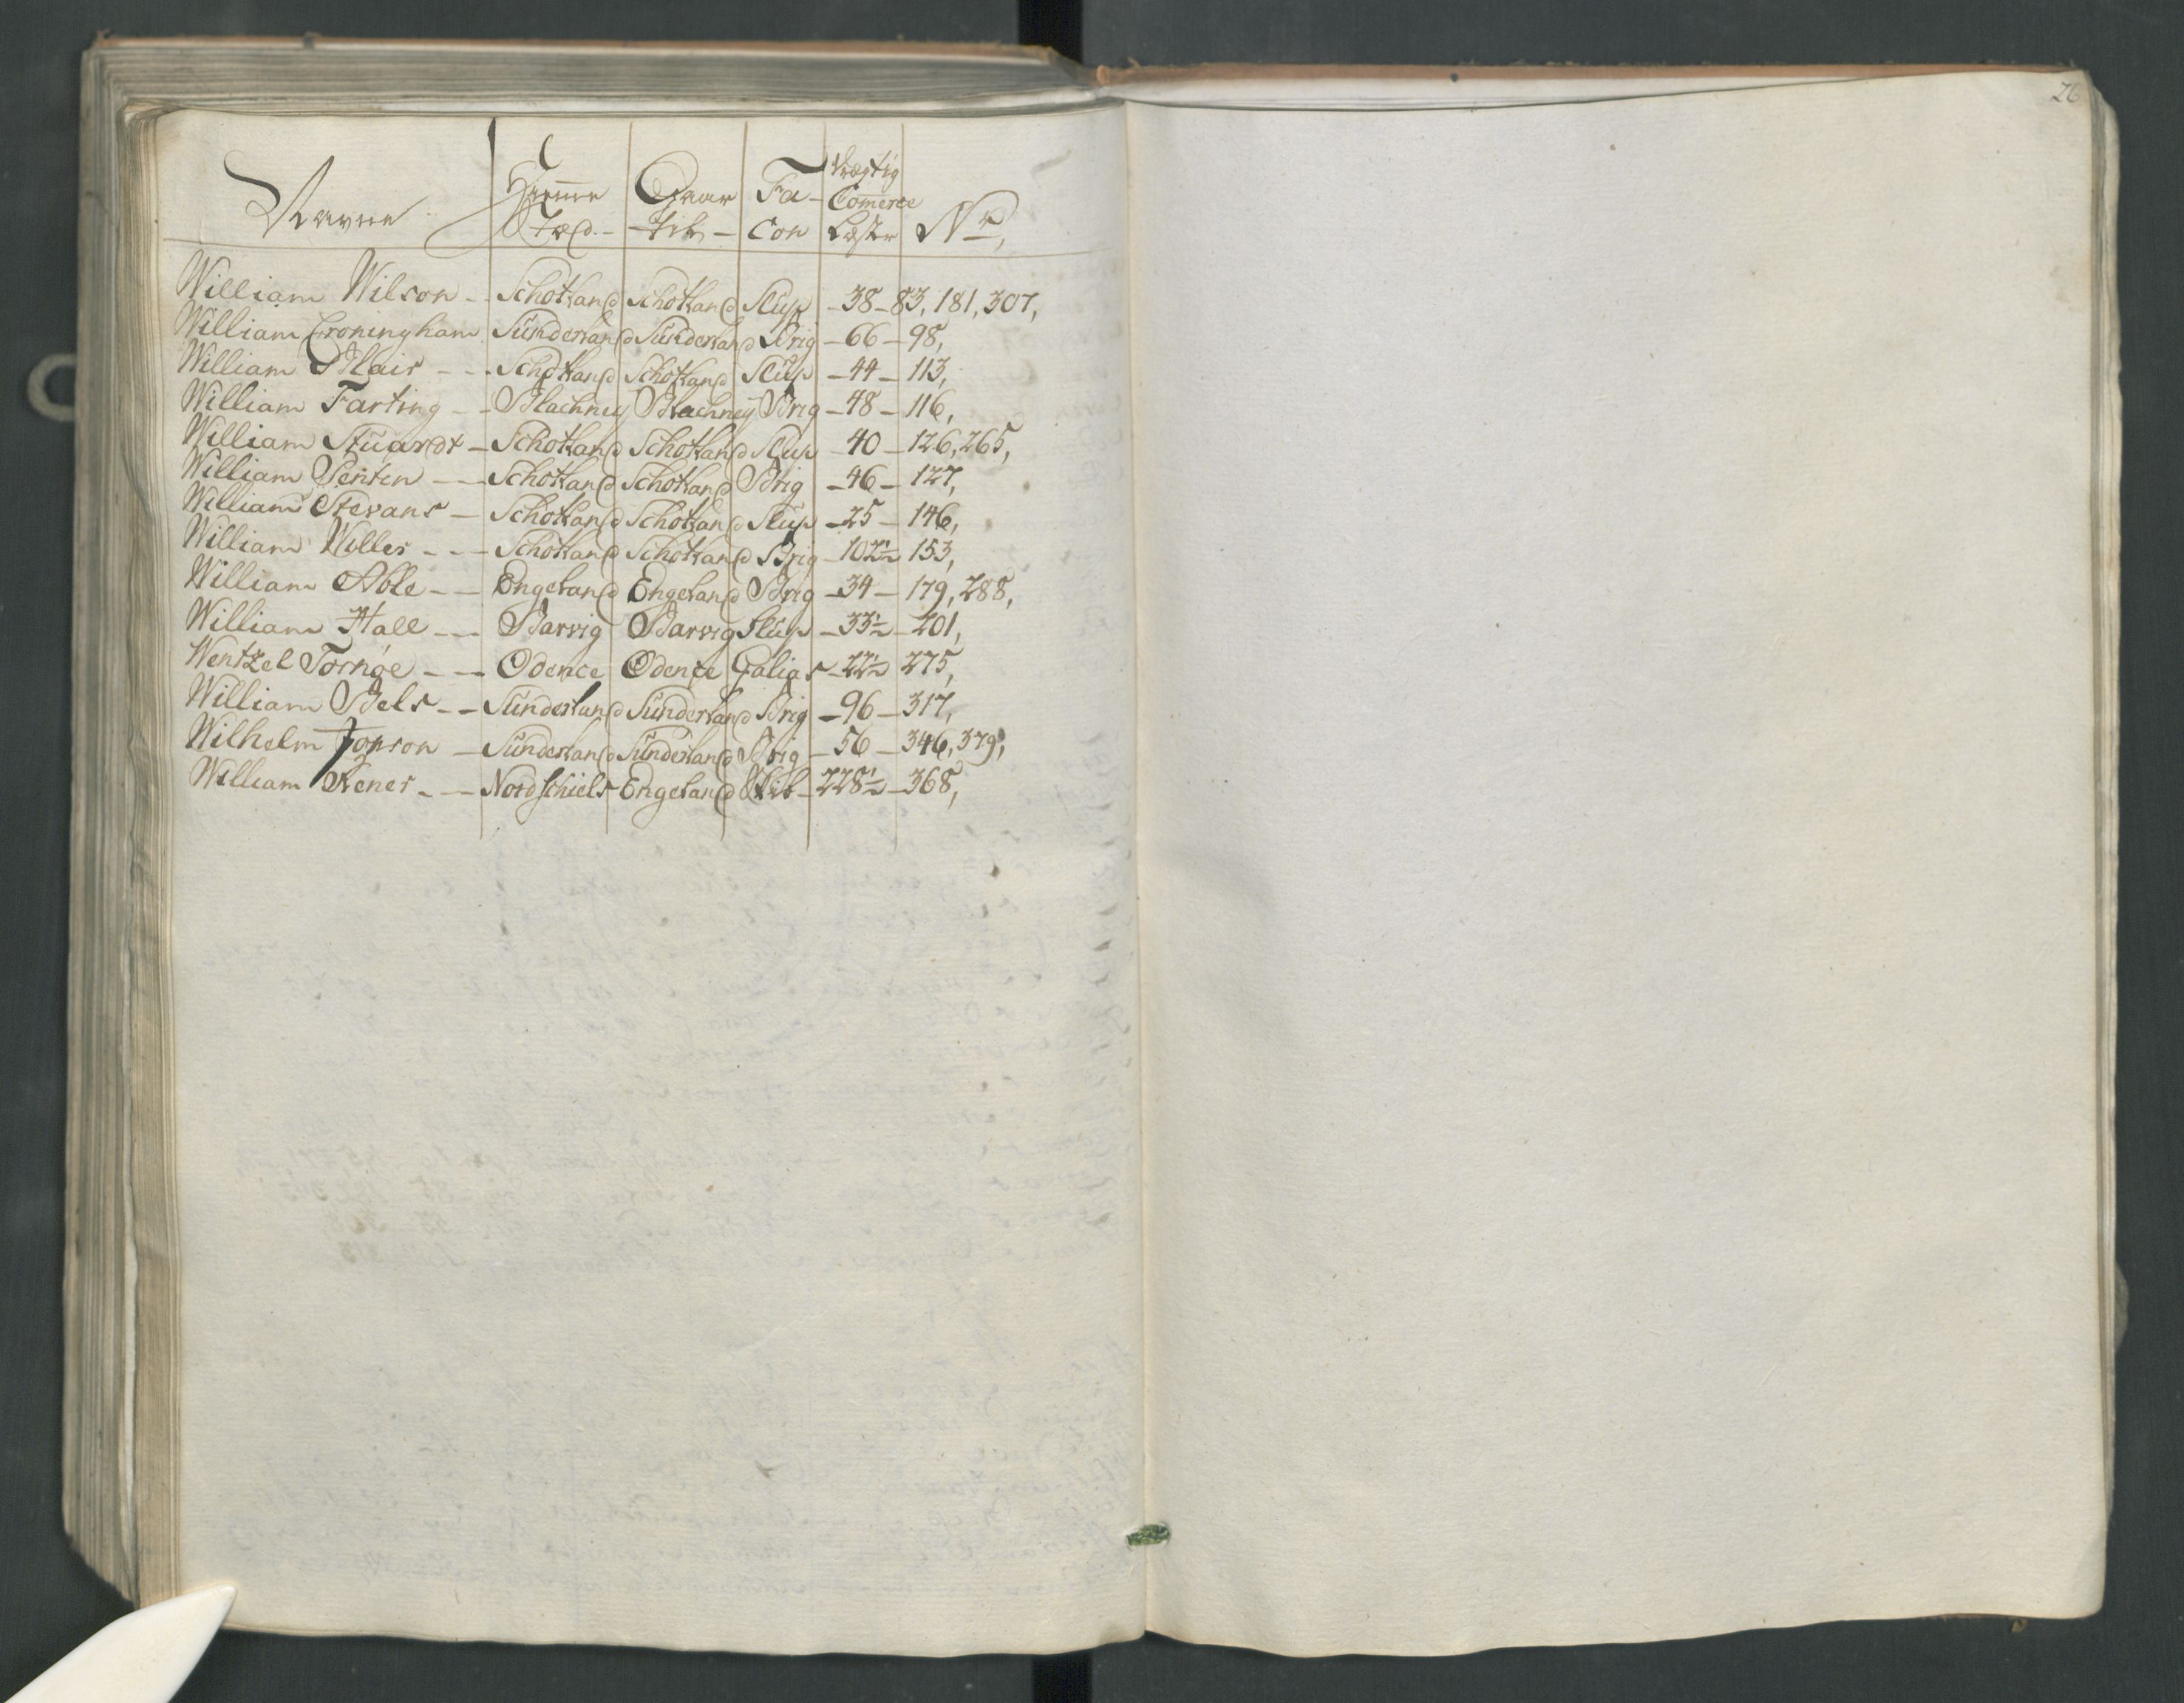 26
Navne Hiemme Stæd. Gaar til Fa-Con Drægtig Comerce Læster Nr,
William Wilson Schotland Schotland Slup 38 83, 181, 307,
William Croningham Sunderland Sunderland Brig 66 98,
William Blair Schotland Schotland Slup 44 113,
William Farting Blachney Blachney Brig 48 116,
William Stuardt Schotland Schotland Slup 40 126, 265,
William Penten Schotland Schotland Brig 46 127,
William Stevans Schotland Schotland Slup 25 146,
William Willer Schotland Schotland Brig 102½ 153,
William Able Engeland Engeland Brig 34 179, 288,
William Hall Barvig Barvig Slup 33½ 201,
Wentzel Tornøe Odence Odence Galias 22½ 275,
William Bels Sunderland Sunderland Brig 96 317,
Wilhelm Jonson Sunderland Sunderland Brig 56 346, 379,
William Rener Nordschiels Engeland Skib 228½ 368,